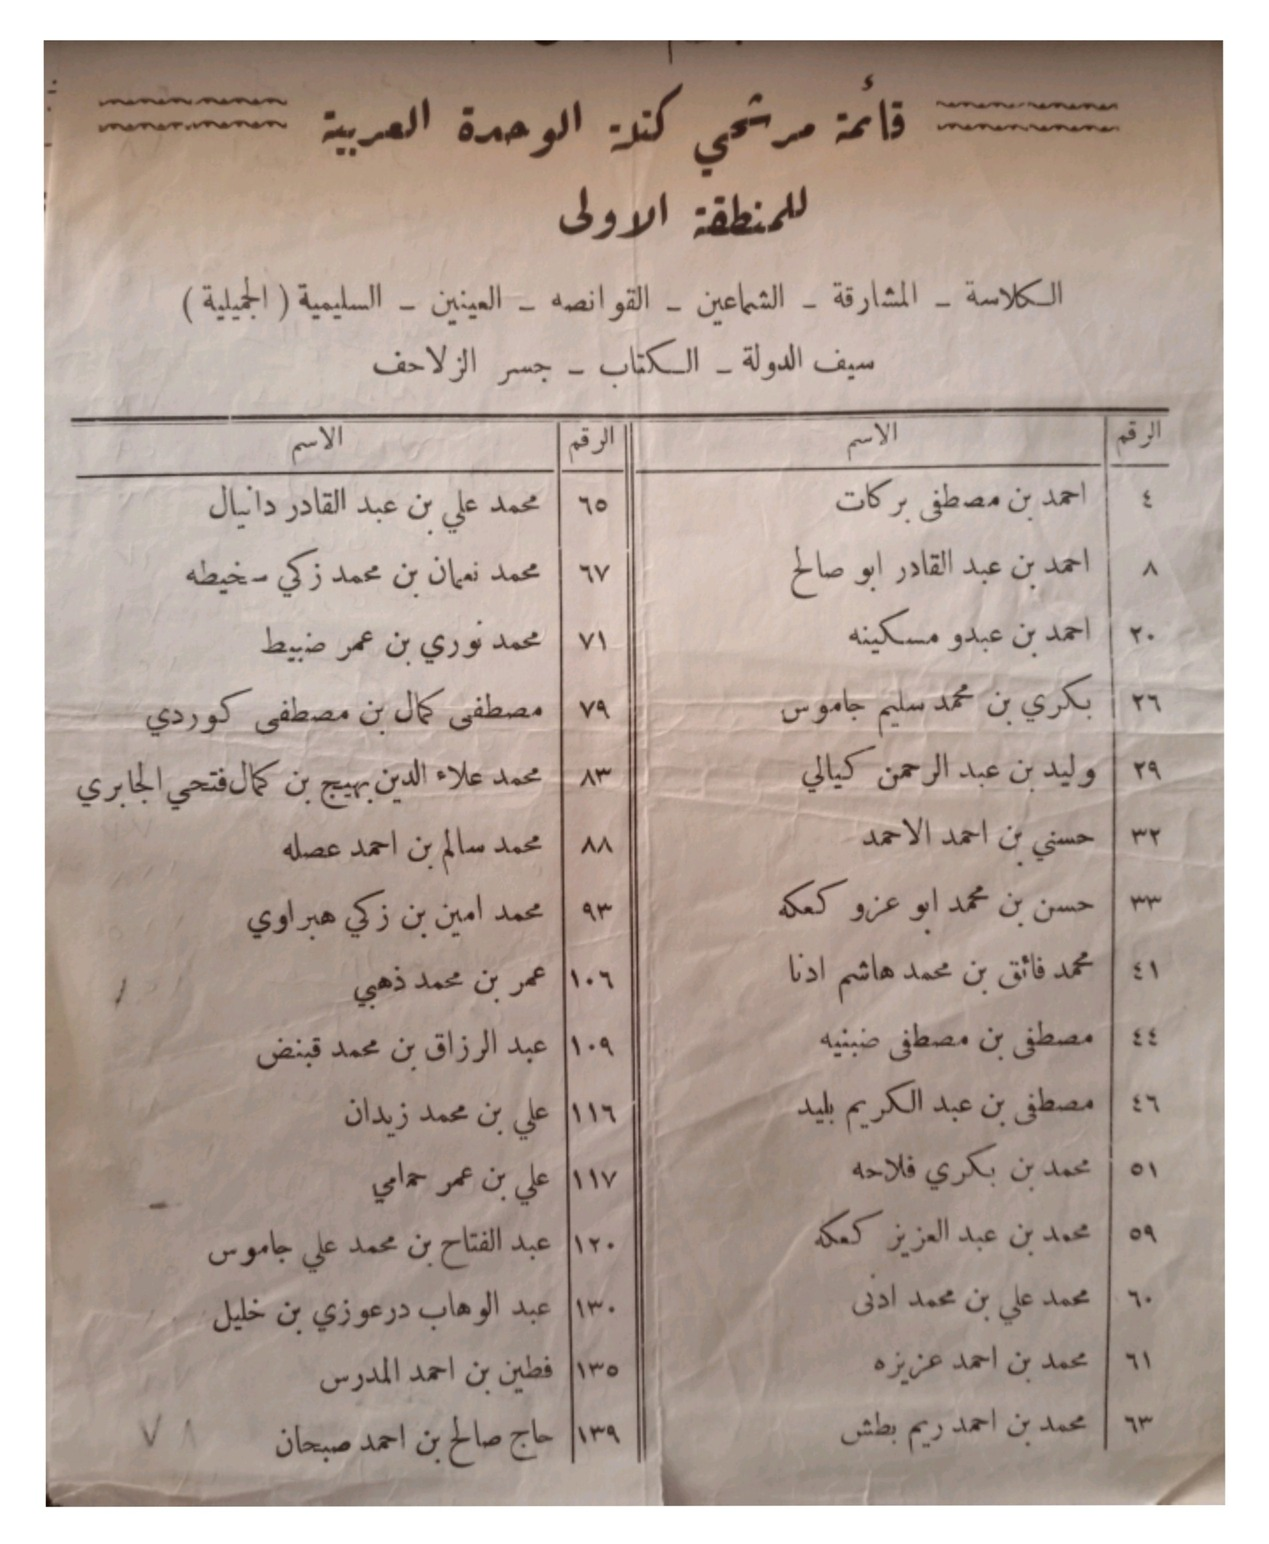 قائمة مرشحي كتلة الوحدة العربية
للمنطقة الاولى
الكلاسة - المشارقة - الشماعين - القوانصه - العينين - السليمية (الجميلية)
سيف الدولة - الكتاب - جسر الزلاحف
الرقم الاسم
٤ احمد بن مصطفى بركات
٨ احمد بن عبد القادر ابو صالح
٢٠ احمد بن عبدو مسكينه
٢٦ بكري بن محمد سليم جاموس
٢٩ وليد بن عبد الرحمن كيالي
٣٢ حسني بن احمد الاحمد
٣٣ حسن بن محمد ابو عزو كعكه
٤١ محمد فائق بن محمد هاشم ادنا
٤٤ مصطفى بن مصطفى ضبنيه
٤٦ مصطفى بن عبد الكريم بليد
٥١ محمد بن بكري فلاحه
٥٩ محمد بن عبد العزيز كعكه
٦٠ محمد علي بن محمد ادنى
٦١ محمد بن احمد عزيزه
٦٣ محمد بن احمد ريم بطش
الرقم الاسم
٦٥ محمد علي بن عبد القادر دانيال
٦٧ محمد نعمان بن محمد زكي سخيطه
٧١ محمد نوري بن عمر ضبيط
٧٩ مصطفى كمال بن مصطفى كوردي
٨٣ محمد علاء الدين بهيج بن كمال فتحي الجابري
٨٨ محمد سالم بن احمد عصله
٩٣ محمد امين بن زكي هبراوي
١٠٦ عمر بن محمد ذهبي
١٠٩ عبد الرزاق بن محمد قبنض
١١٦ علي بن محمد زيدان
١١٧ علي بن عمر حمامي
١٢٠ عبد الفتاح بن محمد علي جاموس
١٣٠ عبد الوهاب درعوزي بن خليل
١٣٥ فطين بن احمد المدرس
١٣٩ حاج صالح بن احمد صبحان